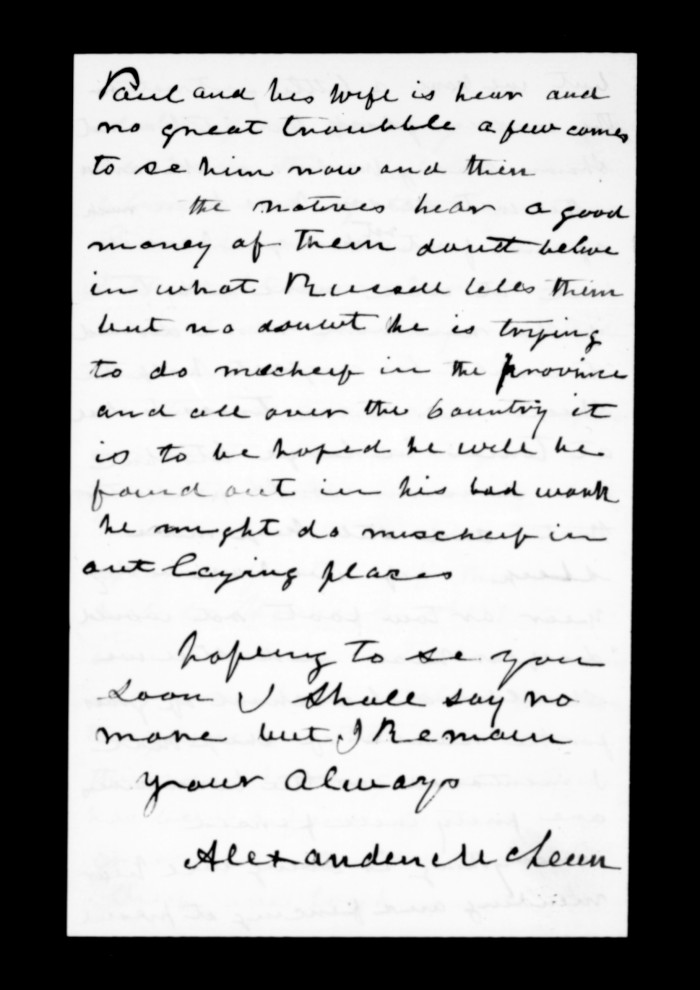 Paul and his wife is hear and
no great troubble a few comes
to se him now and then
the natives hear a good
money of them dount belive
in what Russell tels them
but no douwt he is trying
to do mischeif in the province
and all over the country it
is to be hoped he will be
found out in his bad work
he might do mischeif in
out laying places
hopeing to se you
soon I shall say no
more but I Remain
your Always
Alexander McLean